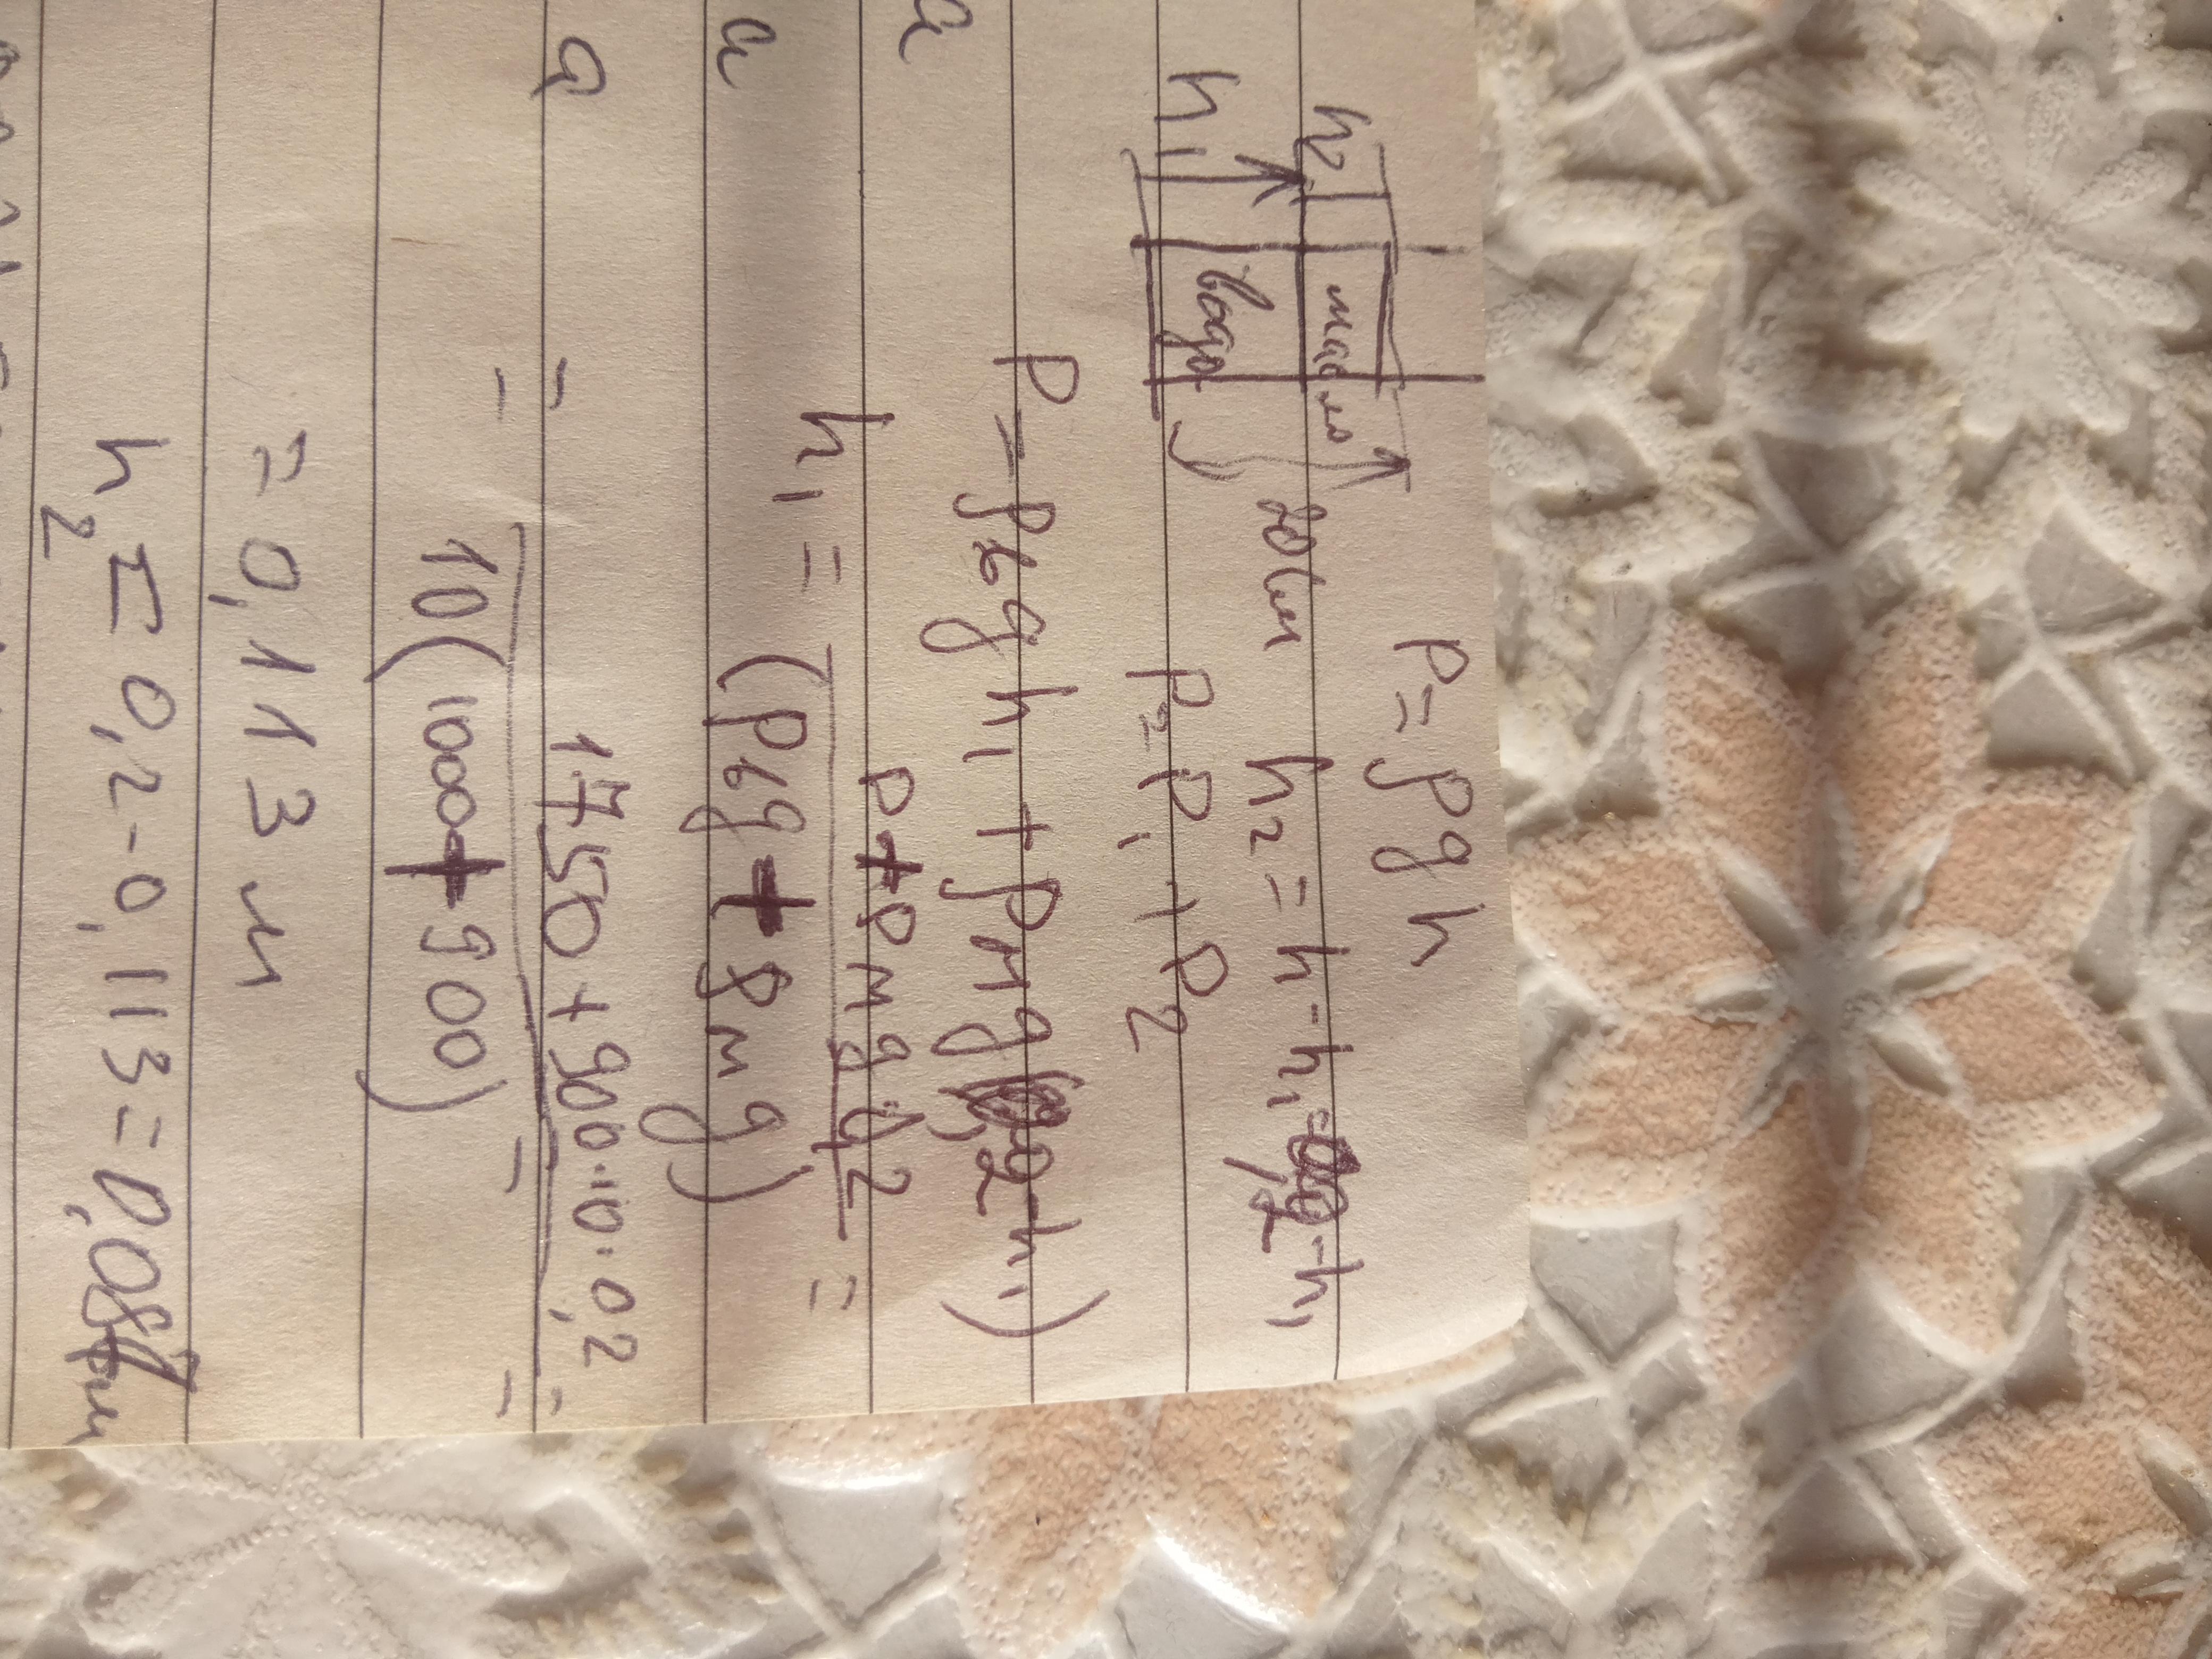 P=ρgh
h₂ масло
20см h₂=h-h₁=0,2-h₁
h₁ вода
P=P₁+P₂
P=ρвgh₁+ρмg(0,2-h₁)
h₁ = P+ρмg0,2 / (ρвg+ρмg) =
= 1750+900·10·0,2 / 10(1000+900) =
=0,113 м
h₂=0,2-0,113=0,087м